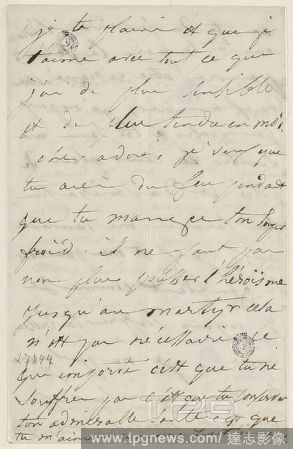 je te plains et que je
t'aime avec tout ce que
j'ai de plus sensible
et de plus tendre en moi,
cher adoré, je veux que
tu aies du feu pendant
que tu manges ton souper
froid. il ne faut pas
non plus pousser l'héroïsme
jusqu'au martyr cela
n'est pas nécessaire. Ce
qui importe c'est que tu ne
souffres pas c'est que tu conserves
ton admirable santé c'est que
tu m'aimes
27644
TPG
www.tpgnews.com / 達志影像